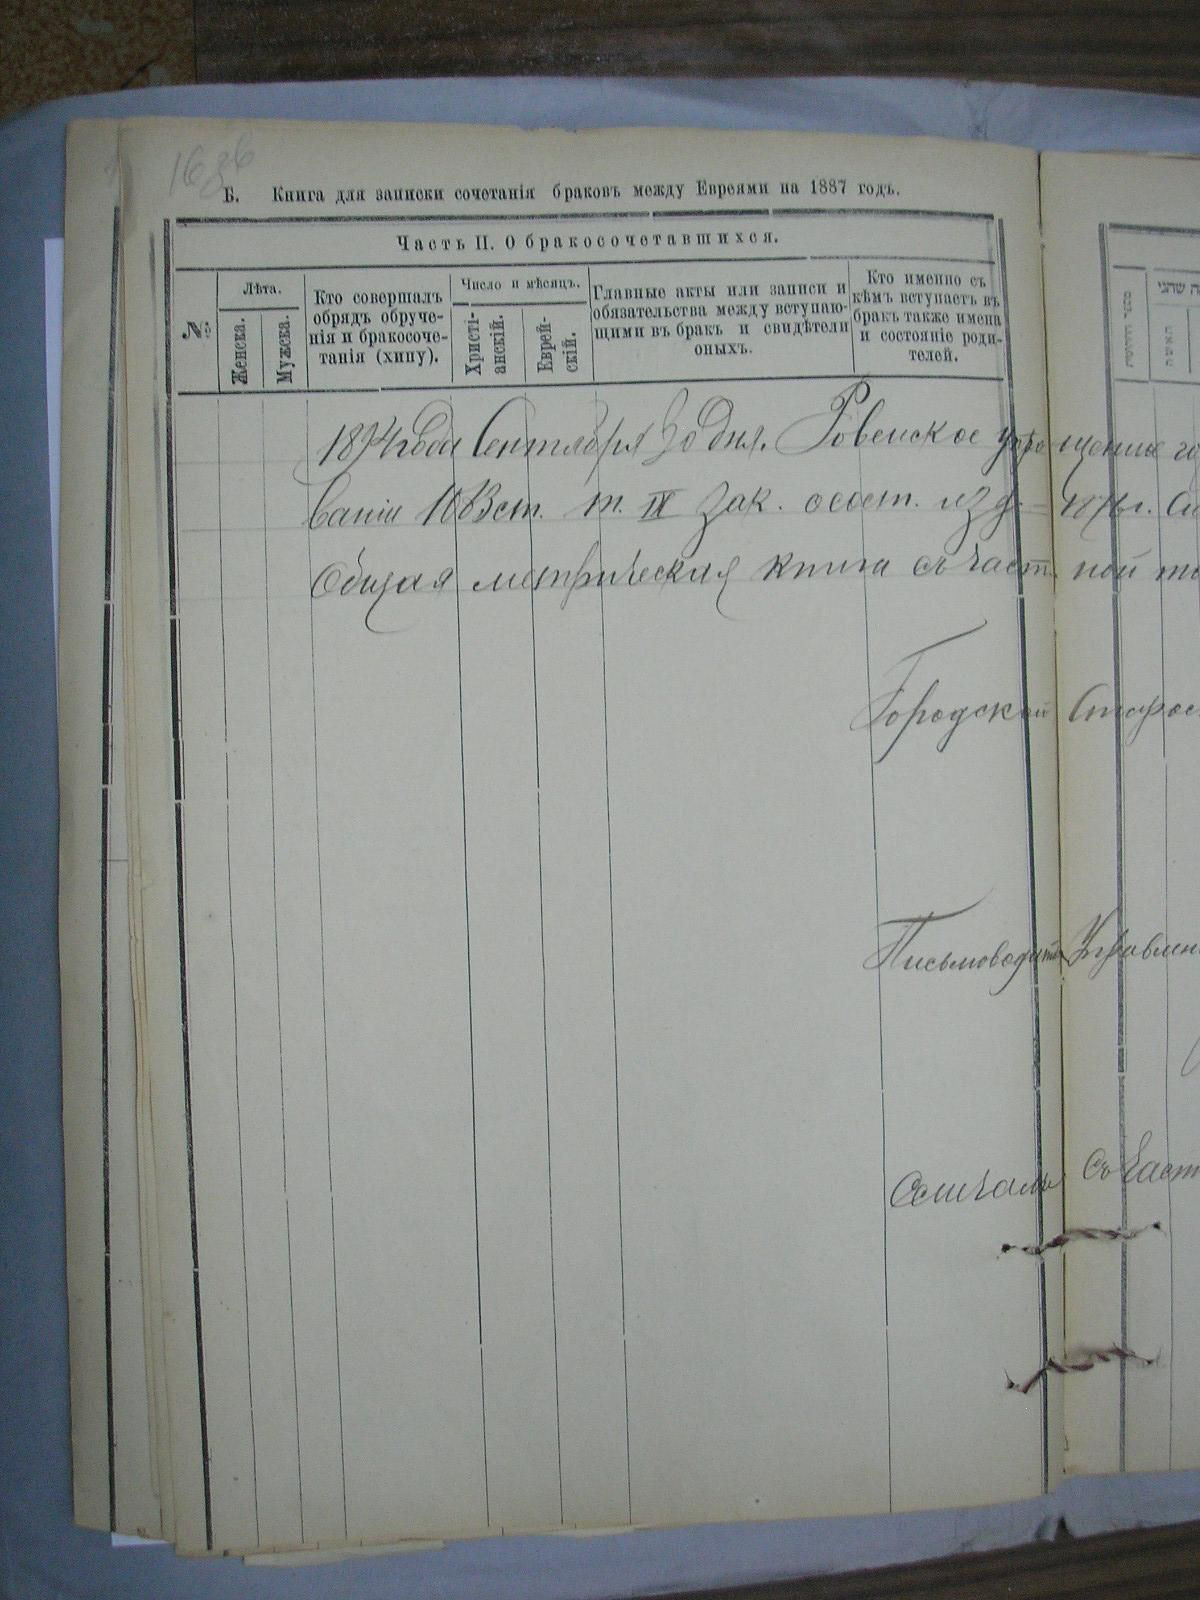 Б. Книга для записки сочетанія браковъ между Евреями на 1887 годъ.
Часть II. О бракосочетавшихся.
№
Лѣта.
Женска.
Мужска.
Кто совершалъ
обрядъ обруче-
нія и бракосоче-
танія (хипу).
Число и мѣсяцъ.
Христі-
анскій.
Еврей-
скій.
Главные акты или записи и
обязательства между вступаю-
щими въ бракъ и свидѣтели
оныхъ.
Кто именно съ
кѣмъ вступаетъ въ
бракъ также имена
и состояніе роди-
телей.
года Сентября 30 дня. Ровенское
ваніи 1083 ст. т. IX Зак. о сост. изд. 1876 г.
Общая метрическая книга съ част. ной
Городской Старос
Письмоводит. Управлен
Съ Част